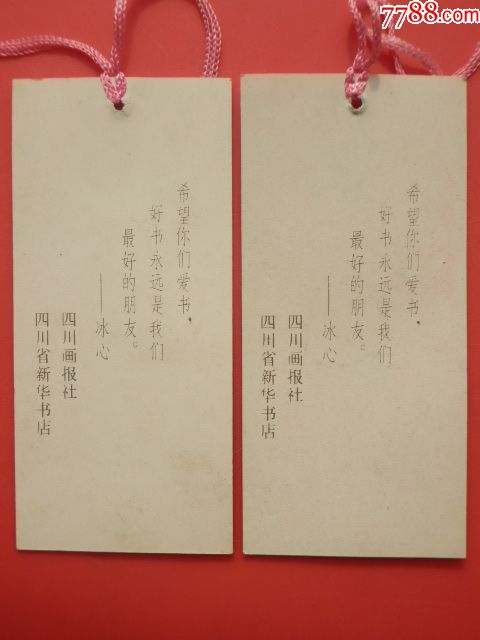 7788.com
中国收藏热线
希望你们爱书，
好书永远是我们
最好的朋友。
——冰心
四川画报社
四川省新华书店
希望你们爱书，
好书永远是我们
最好的朋友。
——冰心
四川画报社
四川省新华书店